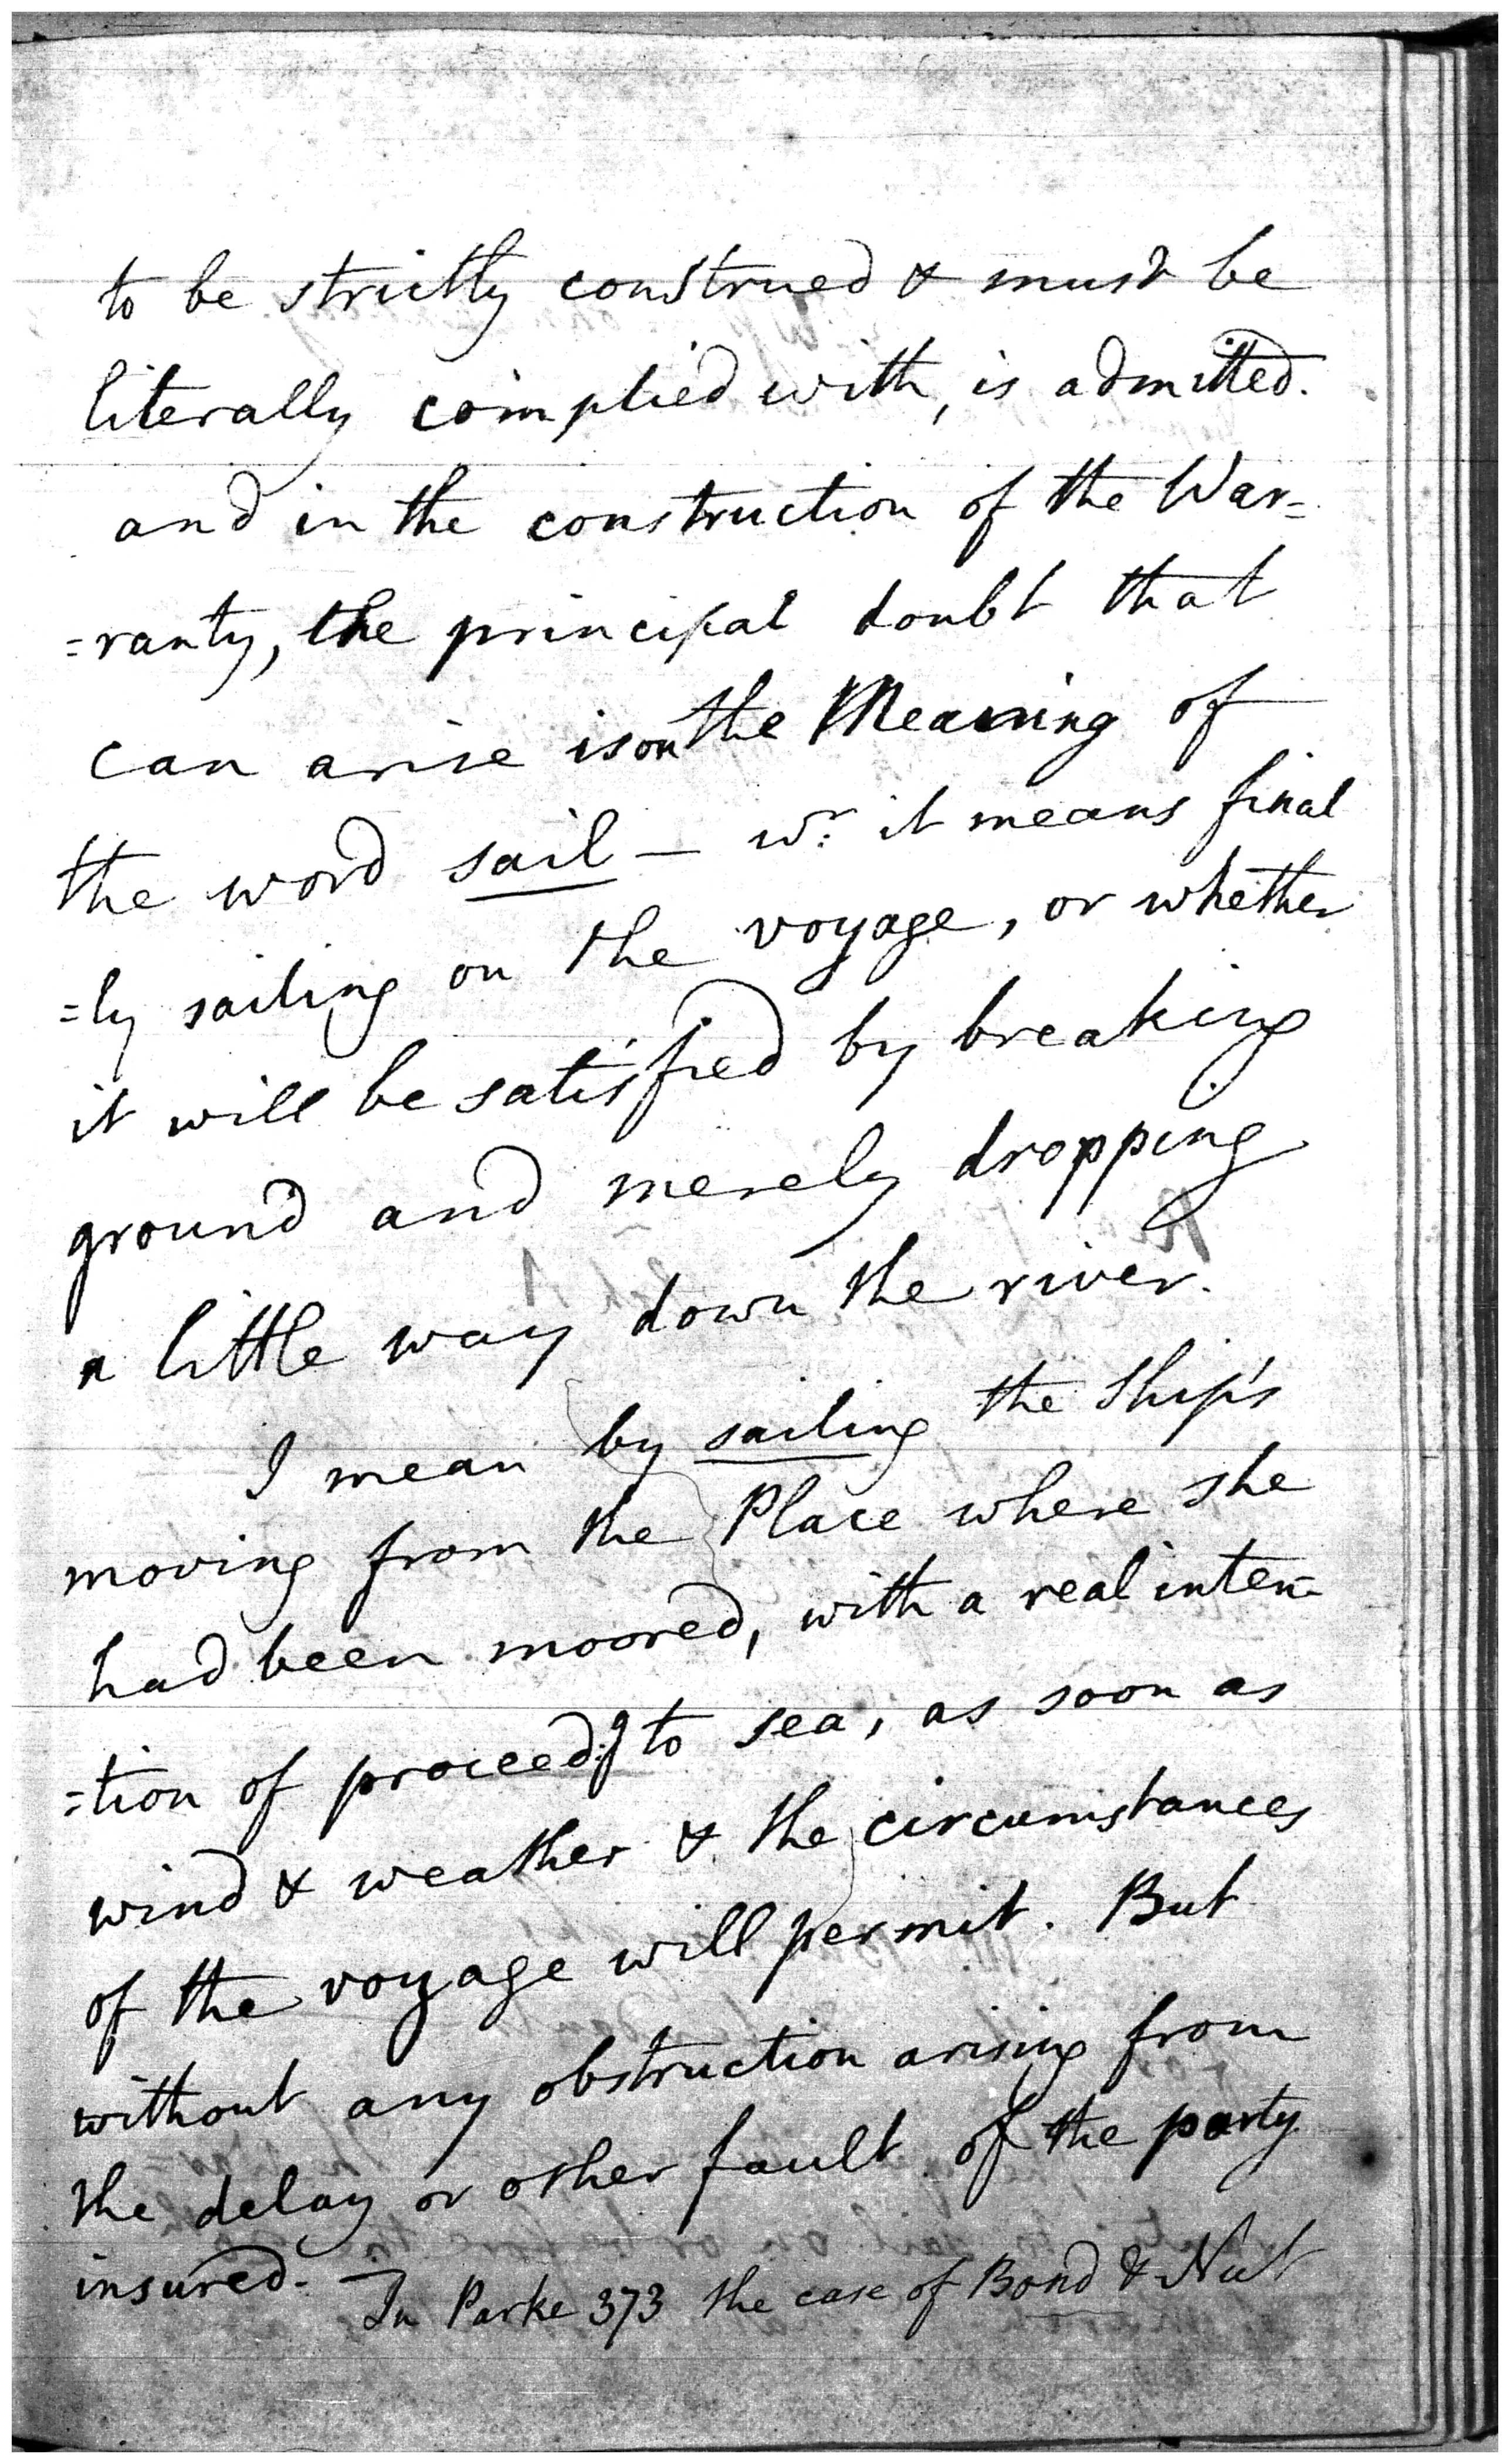 to be strictly construed & must be
literally complied with, is admitted.
and in the construction of the War=
=ranty, the principal doubt that
can arise is on the Meaning of
the word sail — wr. it means final
=ly sailing on the voyage, or whether
it will be satisfied by breaking
ground and merely dropping
a little way down the river.
I mean by sailing the Ship's
moving from the Place where she
had been moored, with a real inten=
=tion of proceedg to sea, as soon as
wind & weather & the circumstances
of the voyage will permit. But
without any obstruction arising from
the delay or other fault of the party
insured. — In Parke 373 the case of Bond & Nut